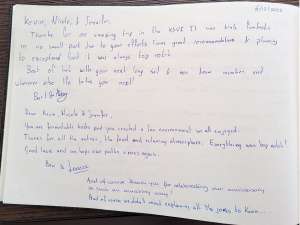 Kevin, Nicole, & Jennifer,
Thanks for an amazing trip in the
in no small part due to your efforts. Your great recommendations & planning
to exceptional food it was always top notch.
Best of luck with your next long sail & new team member and
wherever else life takes you next!
Dear Kevin, Nicole & Jennifer,
You are formidable hosts and you created a fun environment we all enjoyed.
Thanks for all the extras, the food and relaxing atmosphere. Everything was top notch!
Good luck and we hope our paths cross again.
And of course thank you for celebrating our anniversary
in such an amazing way!
And of course we didn't mind explaining all the jokes to Kevin....